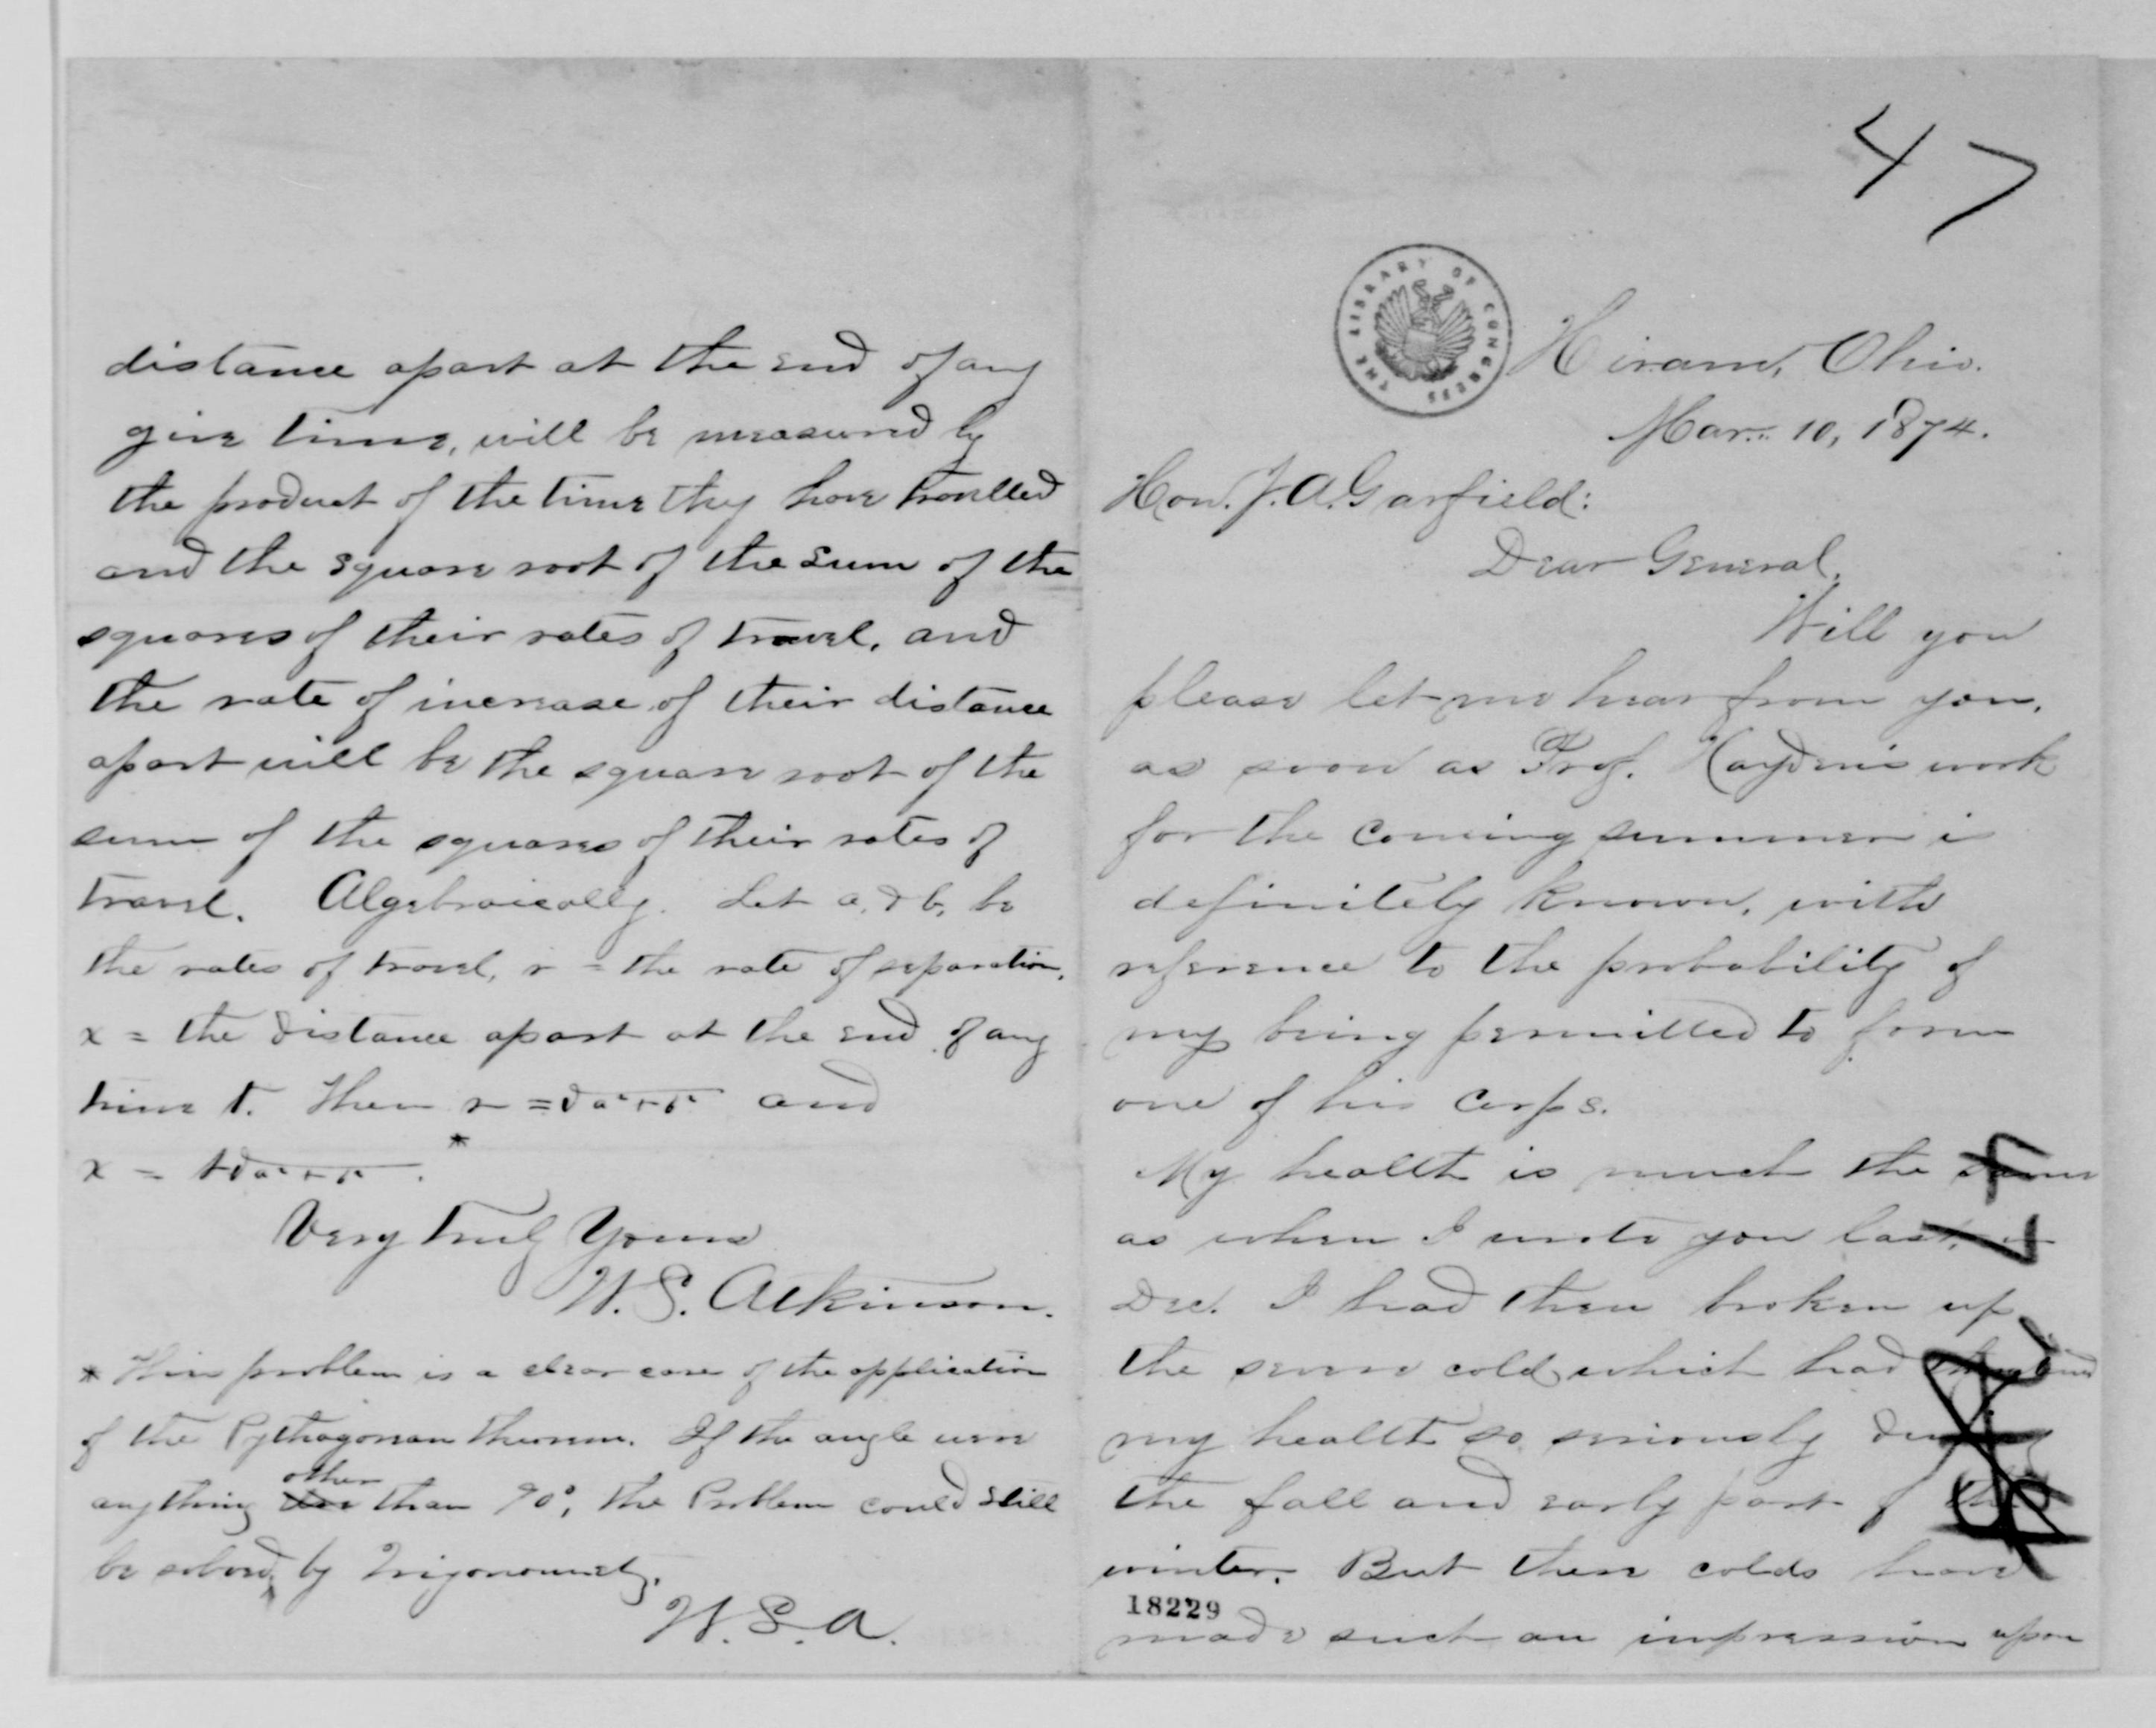 47
THE LIBRARY OF CONGRESS
Hiram, Ohio.
Mar. 10, 1874.
Hon. J. A. Garfield:
Dear General,
Will you
please let me hear from you,
as soon as Prof. Hayden's work
for the coming summer is
definitely known, with
reference to the probability of
my being permitted to form
one of his corps.
My health is much the same
as when I wrote you last, in
Dec. I had then broken up
the severe cold which had
my health so seriously during
the fall and early part of the
winter. But these colds have
18229
made such an impression upon
distance apart at the end of any
give time, will be measured by
the product of the time they have travelled
and the square root of the sum of the
squares of their rates of travel, and
the rate of increase of their distance
apart will be the square root of the
sum of the squares of their rates of
travel. Algebraically. Let a, & b, be
the rates of travel, r = the rate of separation,
x = the distance apart at the end of any
time t. Then r = √a²+b² and
x = t√a²+b². *
Very Truly Yours
W. S. Atkinson.
* This problem is a clear case of the application
of the Pythagorean theorem. If the angle were
anything other than 90°, the Problem could still
be solved, by Trigonometry.
W. S. A.